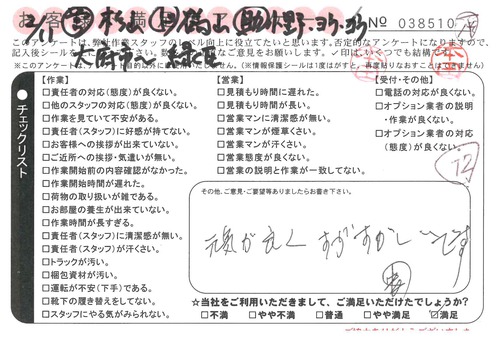 № 038510
このアンケートは、弊社作業スタッフのレベル向上に役立てたいと思います。否定的なアンケートになりますので、
チェックリスト
【作業】
□責任者の対応(態度)が良くない。
□他のスタッフの対応(態度)が良くない。
□作業を見ていて不安がある。
□責任者(スタッフ)に好感が持てない。
□お客様への挨拶が出来ていない。
□ご近所への挨拶・気遣いが無い。
□作業開始前の内容確認がなかった。
□作業開始時間が遅れた。
□荷物の取り扱いが雑である。
□お部屋の養生が出来ていない。
□作業時間が長すぎる。
□責任者(スタッフ)に清潔感が無い。
□責任者(スタッフ)が汗くさい。
□トラックが汚い。
□梱包資材が汚い。
□運転が不安(下手)である。
□靴下の履き替えをしてない。
□スタッフにやる気がみられない。
【営業】
□見積もり時間に遅れた。
□見積もり時間が長い。
□営業マンに清潔感が無い。
□営業マンが煙草くさい。
□営業マンが汗くさい。
□営業態度が良くない。
□営業の説明と作業が一致してない。
【受付・その他】
□電話の対応が良くない。
□オプション業者の説明
・作業が良くない。
□オプション業者の対応
(態度)が良くない。
12
その他、ご意見・ご要望等ありましたらお書き下さい。
元気が良く すがすがしいです
☆当社をご利用いただきまして、ご満足いただけたでしょうか?
□不満 □やや不満 □普通 □やや満足 ☑満足